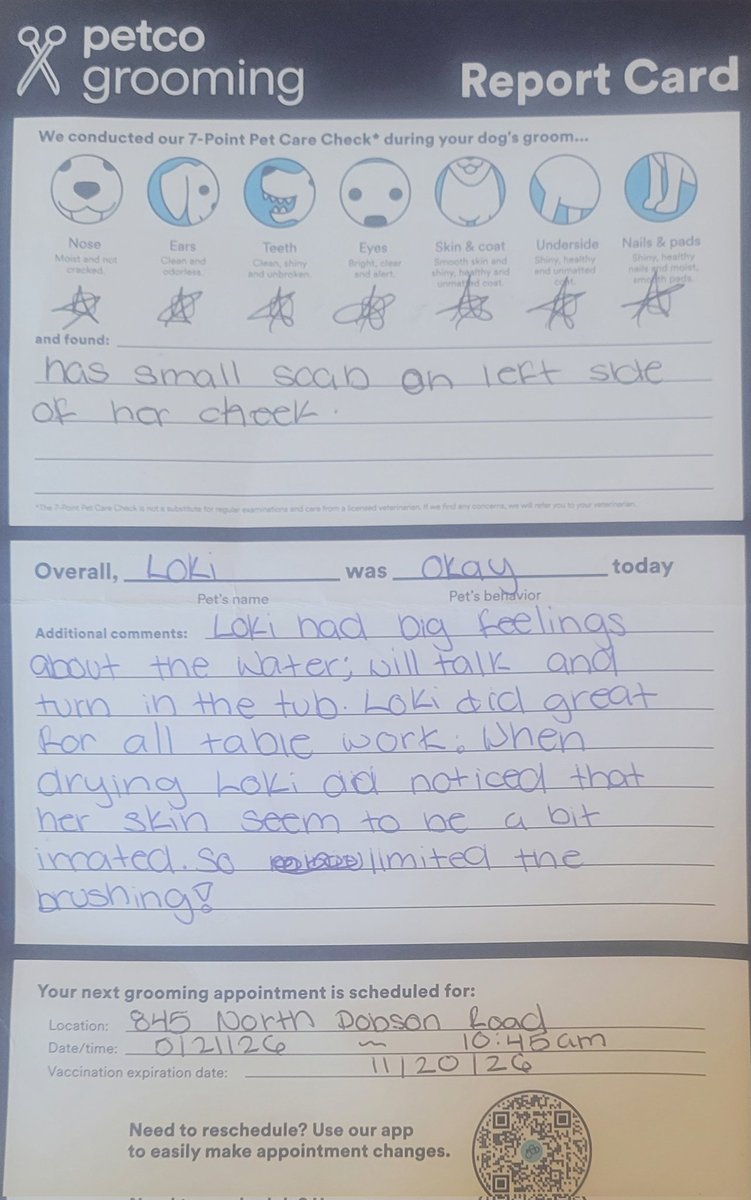 petco
grooming
Report Card
We conducted our 7-Point Pet Care Check* during your dog's groom...
Nose
Moist and not
cracked.
Ears
Clean and
odorless.
Teeth
Clean, shiny
and unbroken.
Eyes
Bright, clear
and alert.
Skin & coat
Smooth skin and
shiny, healthy and
unmatted coat.
Underside
Shiny, healthy
and unmatted
coat.
Nails & pads
Shiny, healthy
nails and moist,
smooth pads.
and found:
has small scab on left side
of her cheek.
*The 7-Point Pet Care Check is not a substitute for regular examinations and care from a licensed veterinarian. If we find any concerns, we will refer you to your veterinarian.
Overall, Loki was okay today
Pet's name Pet's behavior
Additional comments: Loki had big feelings
about the water; will talk and
turn in the tub. Loki did great
for all table work. When
drying Loki did noticed that
her skin seem to be a bit
irrated. So limited the
brushing!
Your next grooming appointment is scheduled for:
Location: 845 North Dobson Road
Date/time: 01/21/26 ~ 10:45am
Vaccination expiration date: 11/20/26
Need to reschedule? Use our app
to easily make appointment changes.